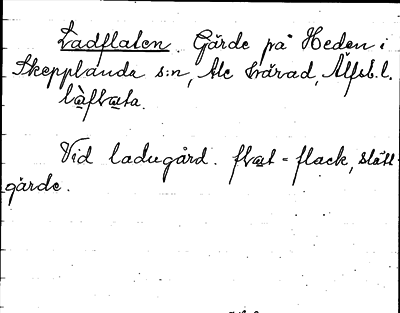 Ladflaten. Gärde på Heden i
Skepplanda s:n, Ale härad, Älfsb. l.
làflata.
Vid ladugård. flat = flack, slätt-
gärde.